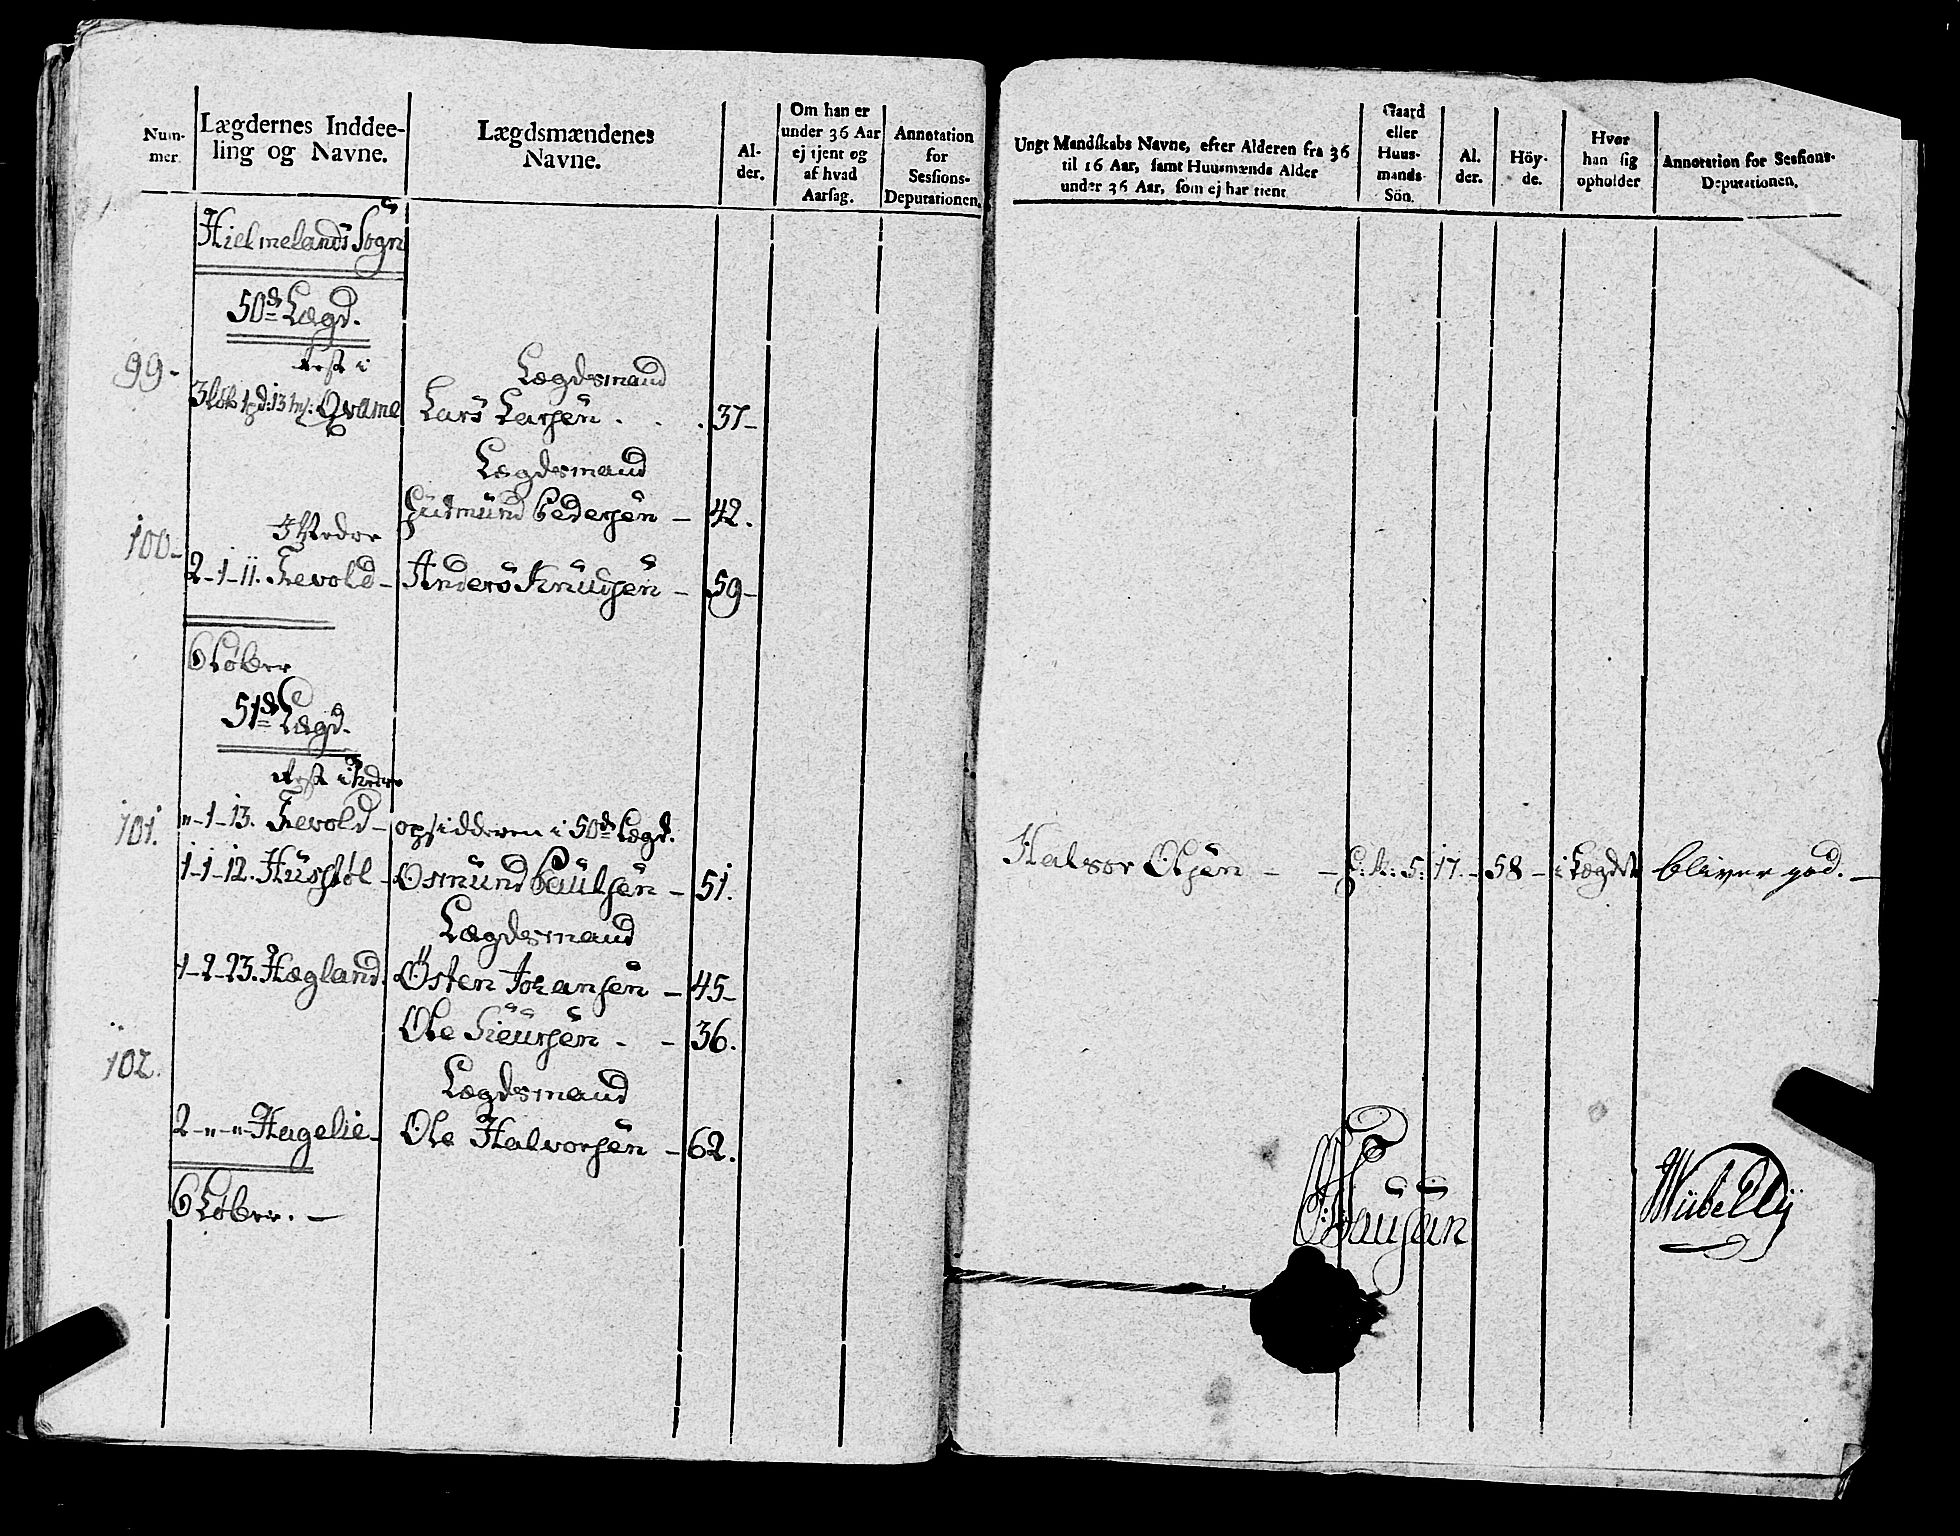 Num-
mer.
Lægdernes Inddee-
ling og Navne.
Lægdsmændenes
Navne.
Al-
der.
Om han er
under 36 Aar
ej tjent og
af hvad
Aarsag.
Annotation
for
Sessions-
Deputationen.
Hielmelands Sogn
50de Lægd.
Rest i
99-
Qvame
Lægdsmand
Lars Larsen . . . 37-
Lægdsmand
Gudmund Pedersen - 42.
100-
2-1-11. Tevold-
Anders Knudsen - 59-
6 Løber
51de Lægd.
Rest i
101.
"-1-13. Tevold-
opsidderen i 50de Lægd.
1-1-12. Huustøl-
Osmund Paulsen - 51.
Lægdsmand
1-2-23. Hægland.
Østen Johansen - 45-
Ole - - 36.
102.
Lægdsmand
2-"-"-Hagelie-
Ole Halvorsen - 62.
6 Løber. -
Ungt Mandskabs Navne, efter Alderen fra 36
til 16 Aar, samt Huusmænds Alder
under 36 Aar, som ej har tient
Gaard
eller
Huus-
mands-
Sön.
Al.
der.
Höy-
de.
Hvor
han sig
opholder
Annotation for Sessions-
Deputationen.
Halvor Olsen - - G: K: S: 17. - 58 - i Lægdet bliver god. -